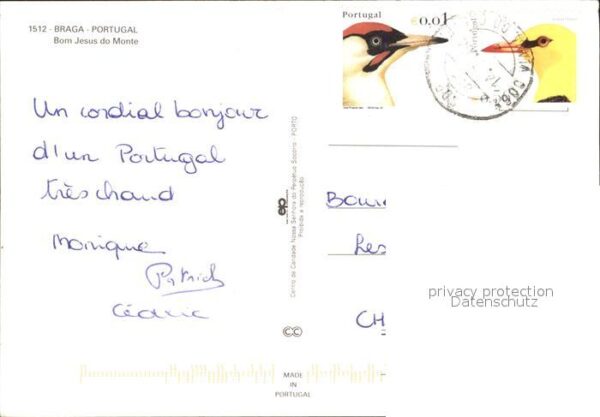 1512 - BRAGA - PORTUGAL
Bom Jesus do Monte
Portugal
€0,01
Portugal
Un cordial bonjour
d'un Portugal
très chaud
Monique
Patrick
Cédric
Centro de Caridade Nossa Senhora do Perpétuo Socorro - PORTO
Proibida a reprodução
Les
CH
privacy protection
Datenschutz
MADE
IN
PORTUGAL